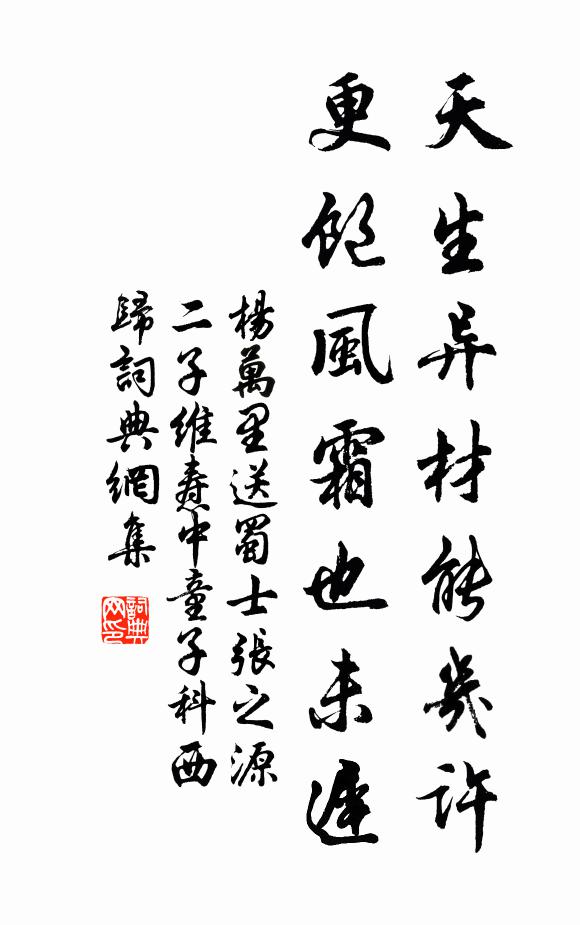 天生异材能幾許
更飽風霜也未遲
楊萬里送蜀士張之源
二子維燾中童子科西
歸詞典網集
詞典网印